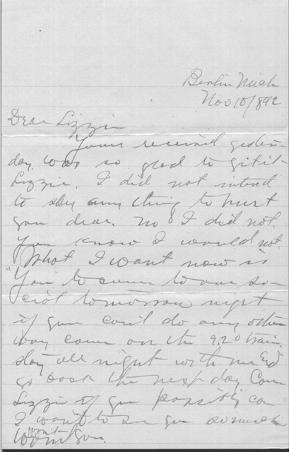 Berlin Mich
Nov 10/892
Dear Lizzie
Yours received yester
day was so glad to git it
Lizzie. I did not intend
to say any thing to hurt
you dear. No I did not.
You know I would not
What I want now is
You to come to our so-
cial tomorrow night
if you can't do any other
way come on the 9.20 train.
stay all night with me &
go back the next day. Come
Lizzie if you possibly can
I want to see you so much
won't you